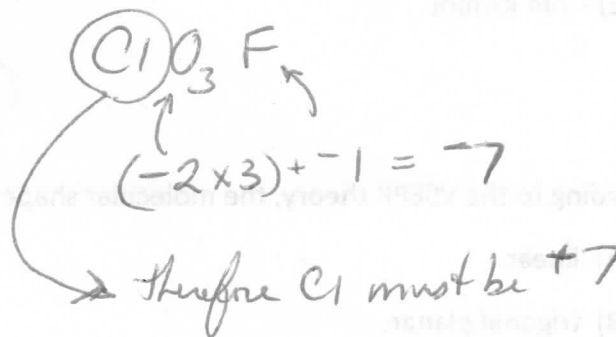 ClO₃ F
(-2x3) + -1 = -7
Therefore Cl must be +7